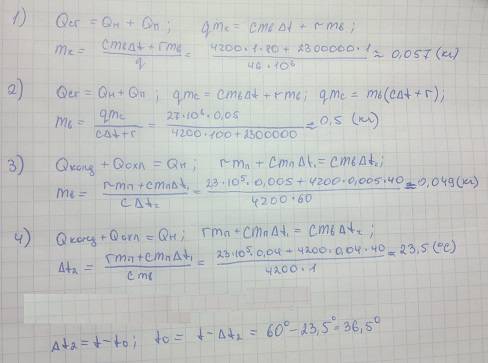 1) Qсг = Qн + Qп ; qmс = cmвΔt + rmв ;
mс = cmвΔt + rmв / q = 4200·1·80 + 2300000·1 / 46·10⁶ ≈ 0,057 (кг)
2) Qсг = Qн + Qп ; qmс = cmвΔt + rmв ; qmс = mв(cΔt + r);
mв = qmс / cΔt + r = 27·10⁶·0,05 / 4200·100 + 2300000 ≈ 0,5 (кг)
3) Qконд + Qохл = Qн ; rmп + cmпΔt₁ = cmвΔt₂ ;
mв = rmп + cmпΔt₁ / cΔt₂ = 23·10⁵·0,005 + 4200·0,005·40 / 4200·60 ≈ 0,049 (кг)
4) Qконд + Qохл = Qн ; rmп + cmпΔt₁ = cmвΔt₂ ;
Δt₂ = rmп + cmпΔt₁ / cmв = 23·10⁵·0,04 + 4200·0,04·40 / 4200·1 = 23,5 (°C)
Δt₂ = t - t₀ ; t₀ = t - Δt₂ = 60° - 23,5° = 36,5°